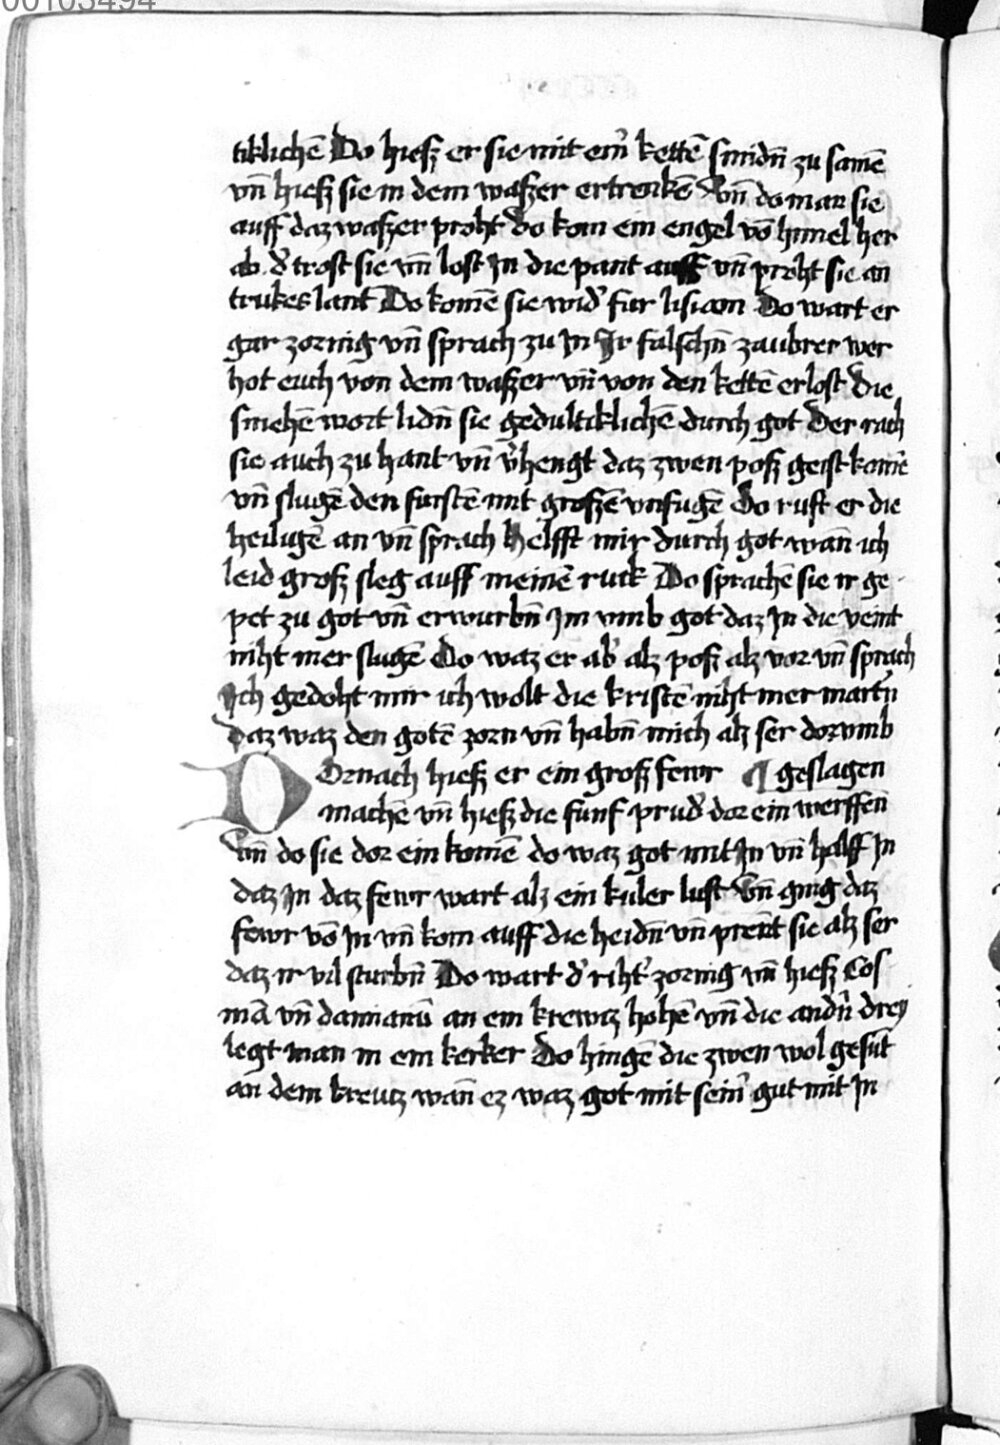 00103494
tiklichē Do hiesz er sie mit eīr kettē smidn̄ zu samē
vn̄ hiesz sie in dem waszer ertrenkē Vn̄ do man sie
auff daz waszer proht do kom ein engel vō himel her
ab d' trost sie vn̄ lost In die pant auff vn̄ proht sie an
trukes lant Do komē sie wid' fur lisiam Do wart er
gar zornig vn̄ sprach zu In Ir falschn̄ zaubrer wer
hot euch von dem waszer vn̄ von den kettē erlost Die
smehē wort lidn̄ sie gedultiklichē durch got Der rach
sie auch zu hant vn̄ v'hengt daz zwen posz geist komē
vn̄ slugē den furstē mit groszē vnfugē Do ruft er die
heiligē an vn̄ sprach Helfft mir durch got wan̄ ich
leid grosz sleg auff meinē ruck Do sprachē sie ir ge
pet zu got vn̄ erwurbn̄ Im vmb got daz In die veint
niht mer slugē Do waz er ab' alz posz alz vor vn̄ sprach
Ich gedoht mir ich wolt die kristē niht mer martn̄
daz waz den gotē zorn vn̄ habn̄ mich alz ser dorvmb
Dornach hiesz er ein grosz fewr ¶ geslagen
machē vn̄ hiesz die funf prud' dor ein werffen
Vn̄ do sie dor ein komē do waz got mit In vn̄ half In
daz In daz fewr wart alz ein kuler luft Vn̄ ging daz
fewr vō In vn̄ kom auff die heidn̄ vn̄ prent sie alz ser
daz ir vil sturbn̄ Do wart d' riht' zornig vn̄ hiesz Cos
mā vn̄ damianū an ein krewtz hohē vn̄ die andn̄ drey
legt man in ein kerker Do hingē die zwen wol gesūt
an dem kreutz wan̄ ez waz got mit sein' gut mit In